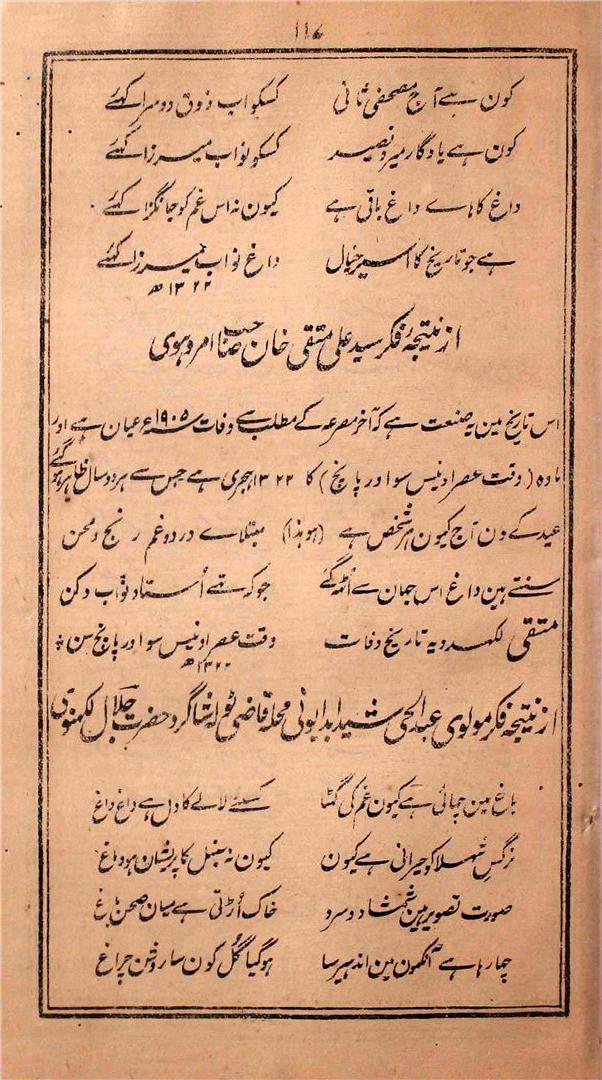 ۱۱۶
کون ہے آج مصحفی ثانی کسکو اب ذوق دوسرا کہئے
کون ہے یادگار میر و نصیر کسکو نواب میرزا کہئے
داغ کا ہے داغ باقی ہے کیون نہ اس غم کو جانگزا کہئے
ہے جو تاریخ کا اسیر خیال داغ نواب میرزا کہئے
۱۳۲۲ھ
از نتیجۂ فکر سید علی متقی خان صاحب امروہوی
اس تاریخ مین یہ صنعت ہے کہ آخر مصرعہ کے مطلب سے وفات سنہ ۱۹۰۵ء عیان ہے اور
مادہ (وقت عصر اونیس سو اور پانچ) کا ۱۳۲۲ ہجری ہے جس سے ہر دو سال ظاہر ہو گئے
عید کے دن آج کیون ہر شخص ہے (ہوہذا) مبتلاے درد و غم رنج و محن
سنتے ہین داغ اس جہان سے اُٹھ گئے جو کہ تھے اُستاد نواب دکن
متقی لکھدو یہ تاریخ وفات وقت عصر اونیس سو اور پانچ سن
۱۳۲۲ھ
از نتیجہ فکر مولوی عبدالحی شیدا بدایونی محلہ قاضی ٹولہ شاگرد حضرت جلال لکھنوی
باغ مین چھائی ہے کیون غم کی گھٹا کسلئے لالے کا دل ہے داغ داغ
نرگس شہلا کو حیرانی ہے کیون کیون نہ سنبل کا پریشان ہو دماغ
صورت تصویر ہین شمشاد و سرو خاک اُڑتی ہے میان صحن باغ
چھا رہا ہے آنکھون مین اندھیر سا ہو گیا گُل کون سا روشن چراغ